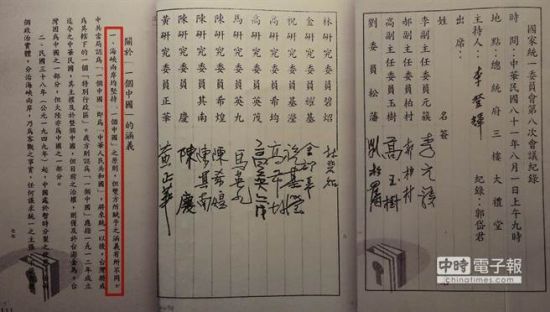 國家統一委員會第八次會議紀錄
時間:中華民國八十一年八月一日上午九時
地點:總統府三樓大禮堂
主持人:李登輝 紀錄:郭岱君
出席:
姓名 簽名
李副主任委員元簇 李元簇
郝副主任委員柏村 郝柏村
高副主任委員玉樹 高玉樹
劉委員松藩 劉松藩
林研究委員碧炤 林碧炤
金研究委員耀基
研究委員基
高研究委員希均 高希均
高研究委員英茂 高英茂
馬研究委員英九 馬英九
陳研究委員希煌 陳希煌
陳研究委員其南 陳其南
陳研究委員慶 陳慶
黃研究委員正華 黃正華
關於「一個中國」的涵義
一、海峽兩岸均堅持「一個中國」之原則,但雙方所賦予之涵義有所不同。
中共當局認為「一個中國」即為「中華人民共和國」,將來統一以後,台灣將成
為其轄下的一個「特別行政區」。我方則認為「一個中國」應指一九一二年成立
迄今之中華民國,其主權及於整個中國,但目前之治權,則僅及於台澎金馬。台
灣固為中國之一部分,但大陸亦為中國之一部分。
二、民國三十八年(公元一九四九年)起,中國處於暫時分裂之狀態,由兩
個政治實體,分治海峽兩岸,乃為客觀之事實,任何謀求統一之主張
中時電子報